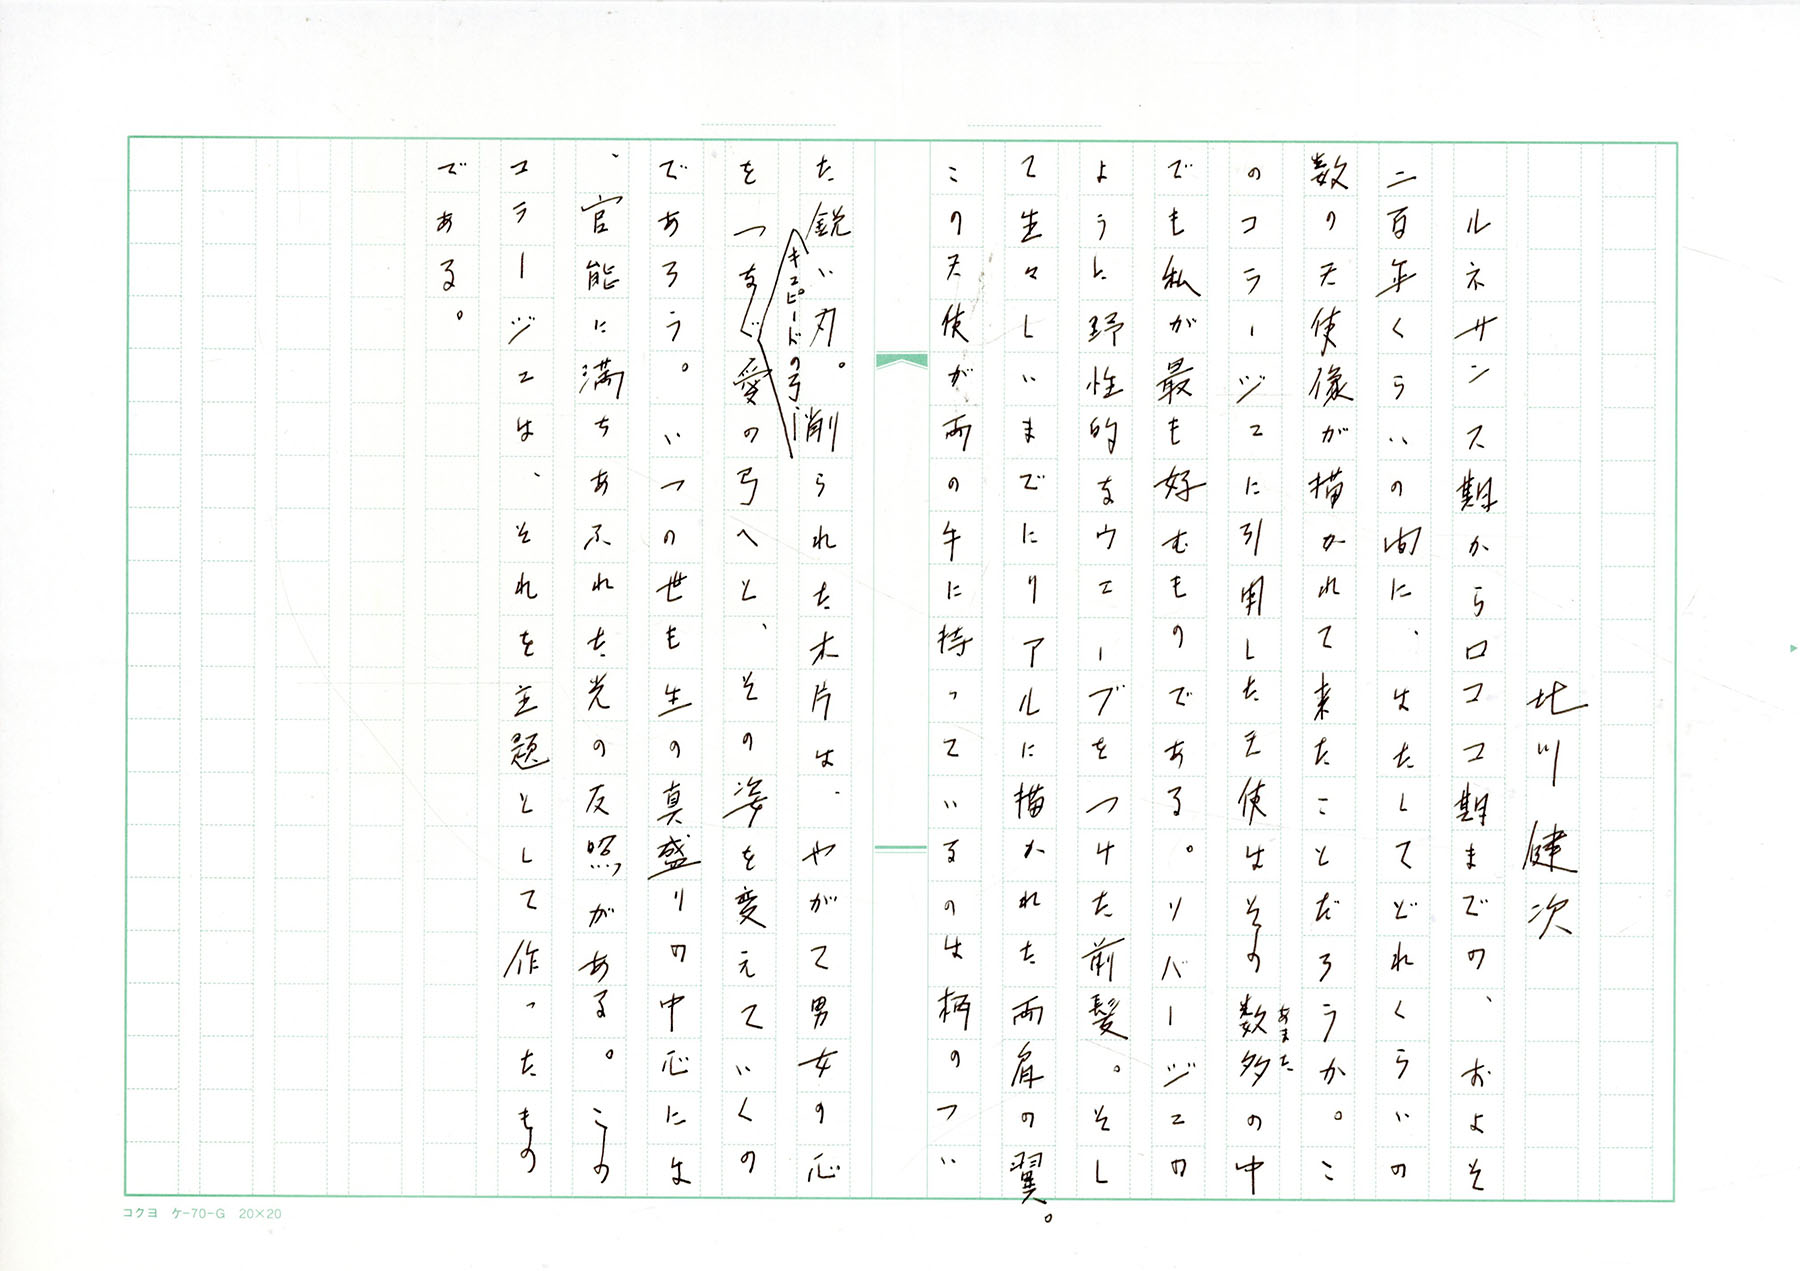 北川健次
ルネサンス期からロココ期までの、およそ
二百年くらいの間に、はたしてどれくらいの
数の天使像が描かれて来たことだろうか。こ
のコラージュに引用した天使はその数多の中
あまた
でも私が最も好むものである。リバージュの
ように野性的なウェーブをつけた前髪。そし
て生々しいまでにリアルに描かれた両肩の翼。
この天使が両の手に持っているのは柄のつい
た鋭い刃。削られた木片は、やがて男女の心
キューピードの弓
をつなぐ愛の弓へと、その姿を変えていくの
であろう。いつの世も生の真盛りの中心には
、官能に満ちあふれた光の反照がある。この
コラージュは、それを主題として作ったもの
である。
コクヨ ケ-70-G 20×20